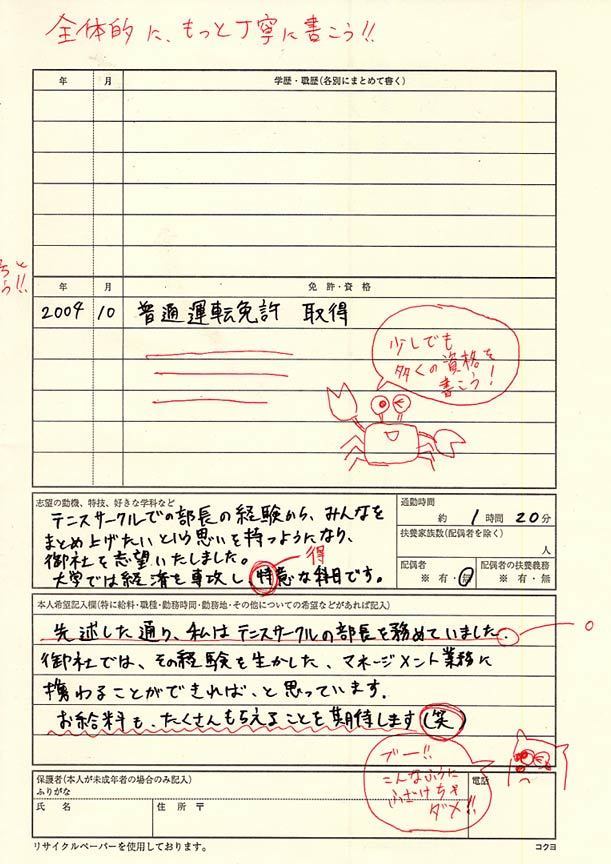 全体的に、もっと丁寧に書こう!!
年 月 学歴・職歴(各別にまとめて書く)
年 月 免許・資格
2004 10 普通運転免許 取得
少しでも
多くの資格を
書こう!
志望の動機、特技、好きな学科など
テニスサークルでの部長の経験から、みんなを
まとめ上げたいという思いを持つようになり、
御社を志望いたしました。
得
大学では経済を専攻し特意な科目です。
通勤時間
約 1 時間 20 分
扶養家族数(配偶者を除く)
人
配偶者
※ 有・無
配偶者の扶養義務
※ 有・無
本人希望記入欄(特に給料・職種・勤務時間・勤務地・その他についての希望などがあれば記入)
先述した通り、私はテニスサークルの部長を務めていました.
。
御社では、その経験を生かした、マネージメント業務に
携わることができれば、と思っています.
お給料も、たくさんもらえることを期待します(笑)
ブー!!
こんなふうに
ふざけちゃ
ダメ!!
保護者(本人が未成年者の場合のみ記入)
ふりがな
電話
氏 名 住 所 〒
リサイクルペーパーを使用しております。
コクヨ